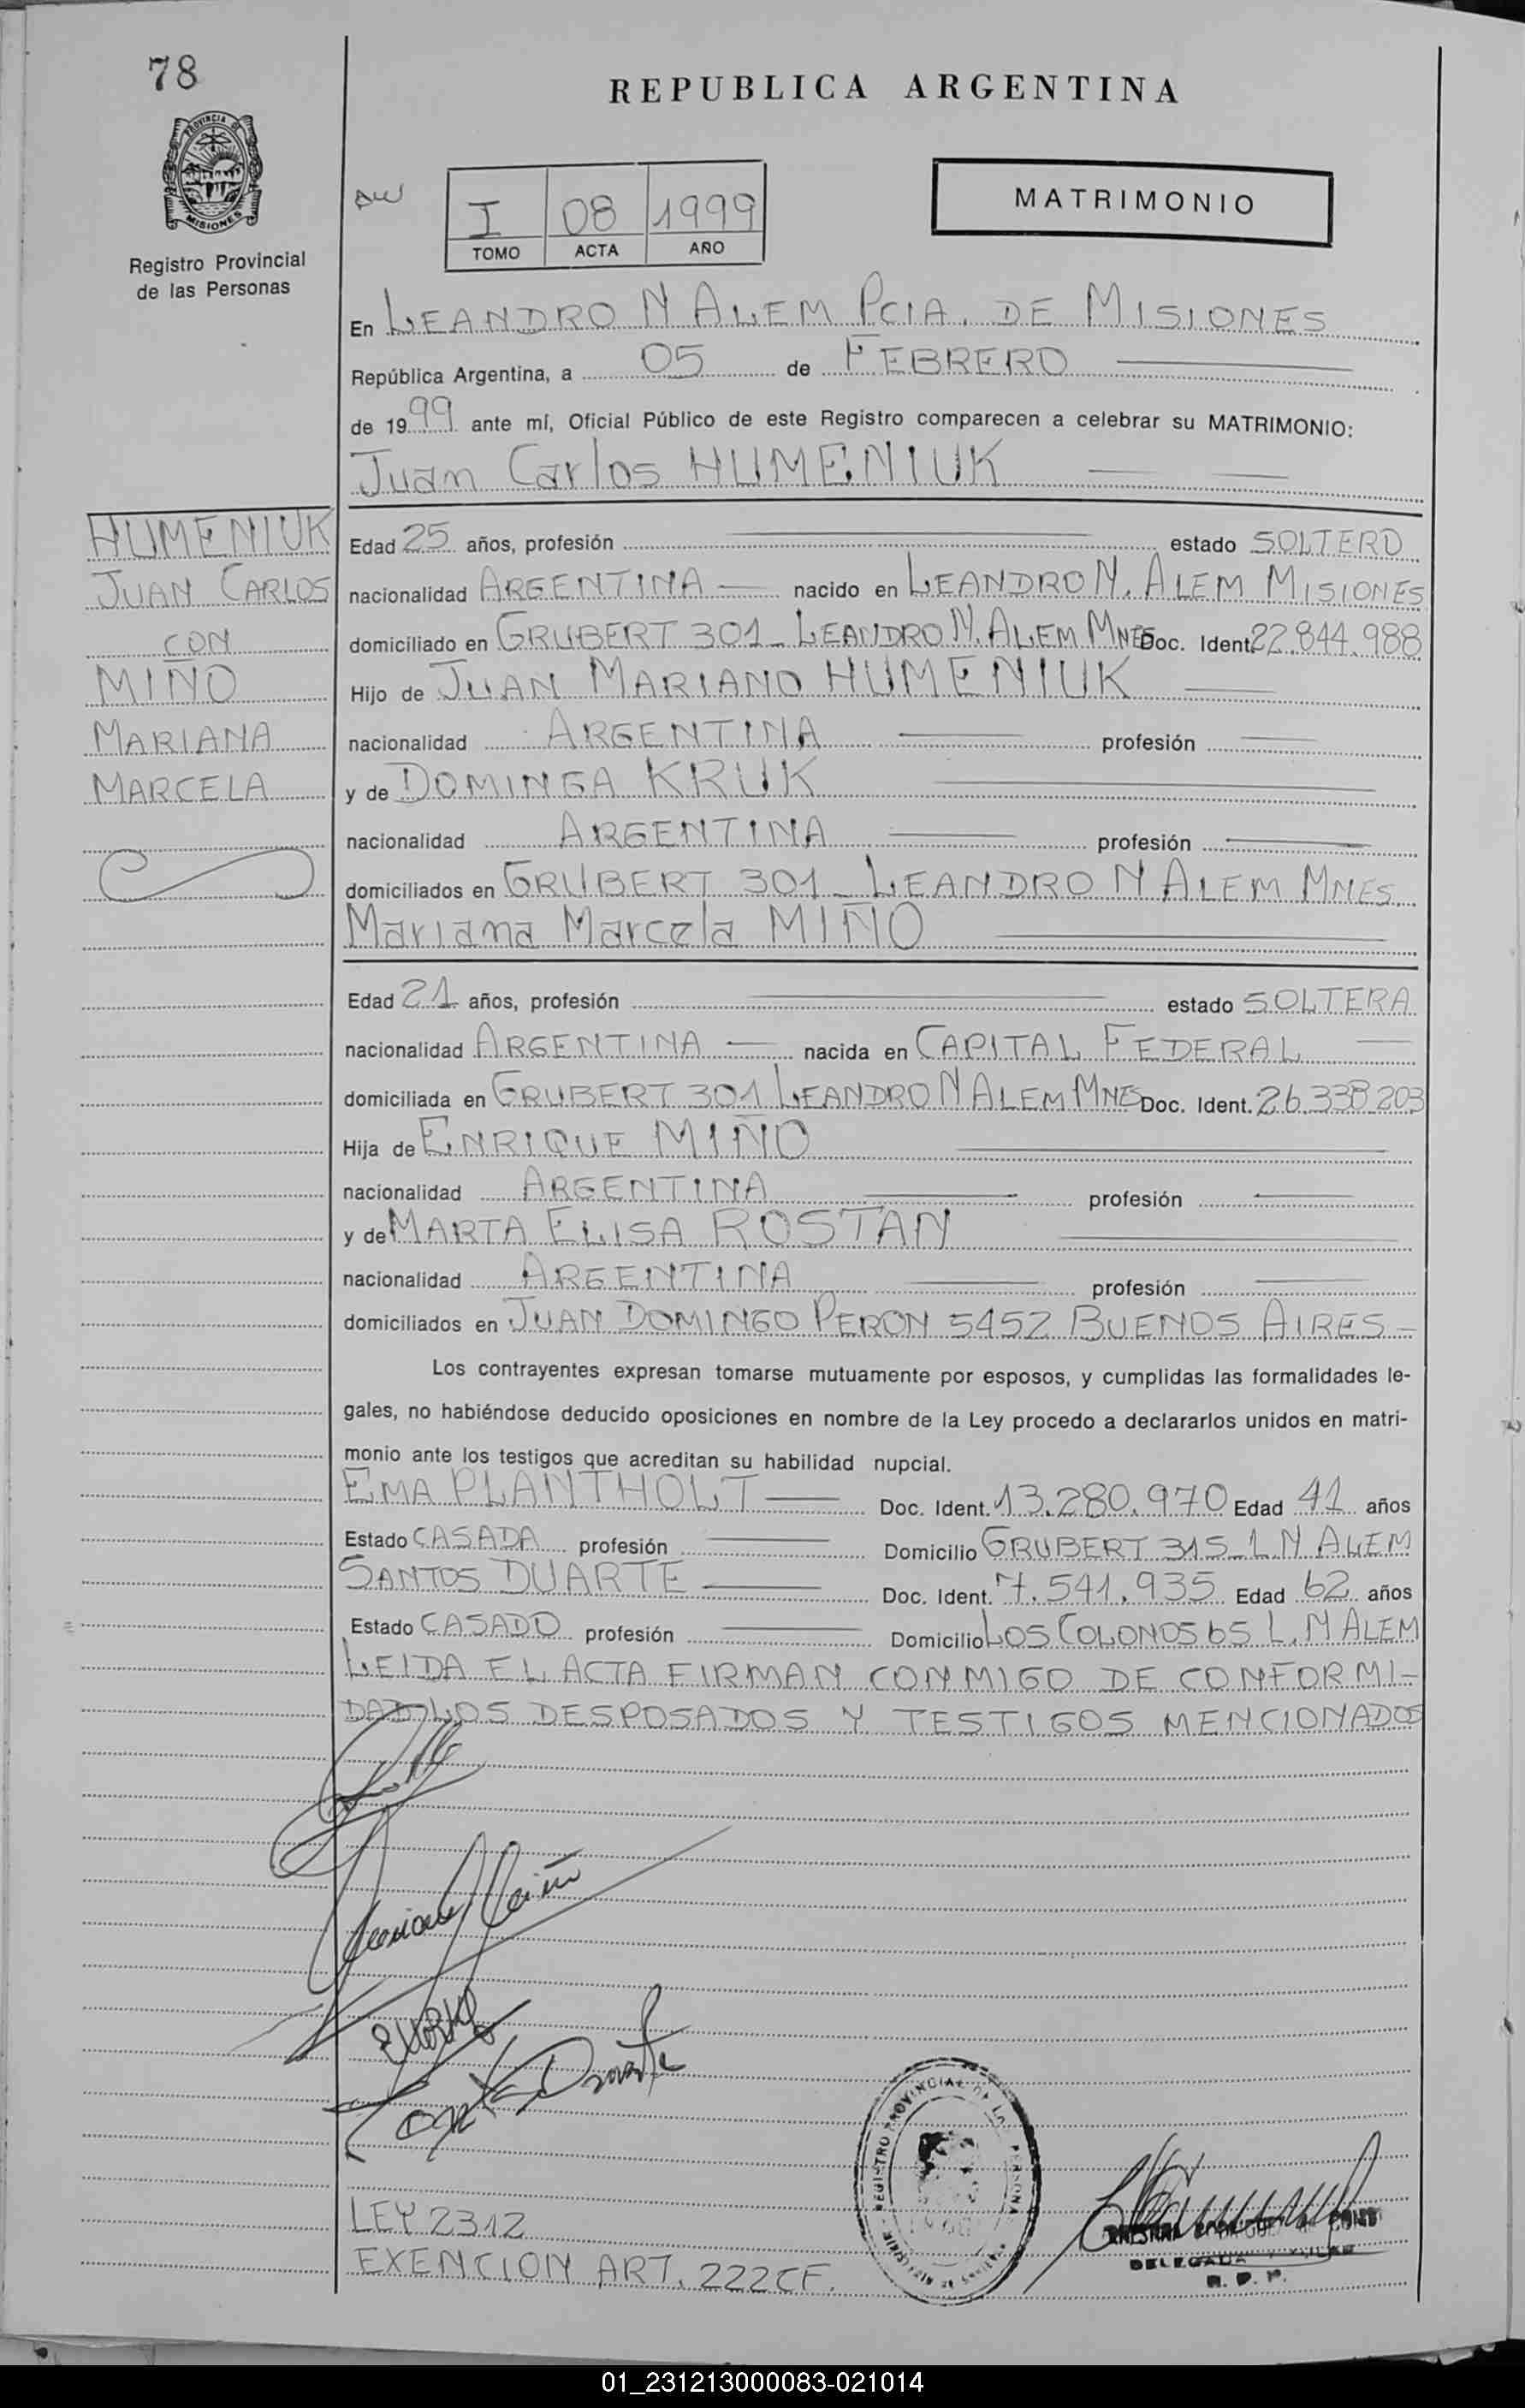 78
REPUBLICA ARGENTINA
PROVINCIA DE
MISIONES
Registro Provincial
de las Personas
I 08 1999
TOMO ACTA AÑO
MATRIMONIO
En LEANDRO N ALEM PCIA. DE MISIONES
República Argentina, a 05 de FEBRERO
de 1999 ante mí, Oficial Público de este Registro comparecen a celebrar su MATRIMONIO:
Juan Carlos HUMENIUK
HUMENIUK
JUAN CARLOS
CON
MIÑO
MARIANA
MARCELA
Edad 25 años, profesión estado SOLTERO
nacionalidad ARGENTINA — nacido en LEANDRO N. ALEM MISIONES
domiciliado en GRUBERT 301 - LEANDRO N. ALEM MNES Doc. Ident. 22.844.988
Hijo de JUAN MARIANO HUMENIUK
nacionalidad ARGENTINA profesión
y de DOMINGA KRUK
nacionalidad ARGENTINA profesión
domiciliados en GRUBERT 301 - LEANDRO N ALEM MNES.
Mariana Marcela MIÑO
Edad 21 años, profesión estado SOLTERA
nacionalidad ARGENTINA — nacida en CAPITAL FEDERAL
domiciliada en GRUBERT 301 LEANDRO N ALEM MNES Doc. Ident. 26.338.203
Hija de ENRIQUE MIÑO
nacionalidad ARGENTINA profesión
y de MARTA ELISA ROSTAN
nacionalidad ARGENTINA profesión
domiciliados en JUAN DOMINGO PERON 5452 BUENOS AIRES -
Los contrayentes expresan tomarse mutuamente por esposos, y cumplidas las formalidades le-
gales, no habiéndose deducido oposiciones en nombre de la Ley procedo a declararlos unidos en matri-
monio ante los testigos que acreditan su habilidad nupcial.
EMA PLANTHOLT Doc. Ident. 13.280.970 Edad 41 años
Estado CASADA profesión Domicilio GRUBERT 315 - L N ALEM
SANTOS DUARTE Doc. Ident. 7.541.935 Edad 62 años
Estado CASADO profesión Domicilio LOS COLONOS 65 L. N ALEM
LEIDA EL ACTA FIRMAN CONMIGO DE CONFORMI-
DAD LOS DESPOSADOS Y TESTIGOS MENCIONADOS
REGISTRO PROVINCIAL DE LAS PERSONAS
LEY 2312
EXENCION ART. 222 CF.
R. P. P.
01_231213000083-021014